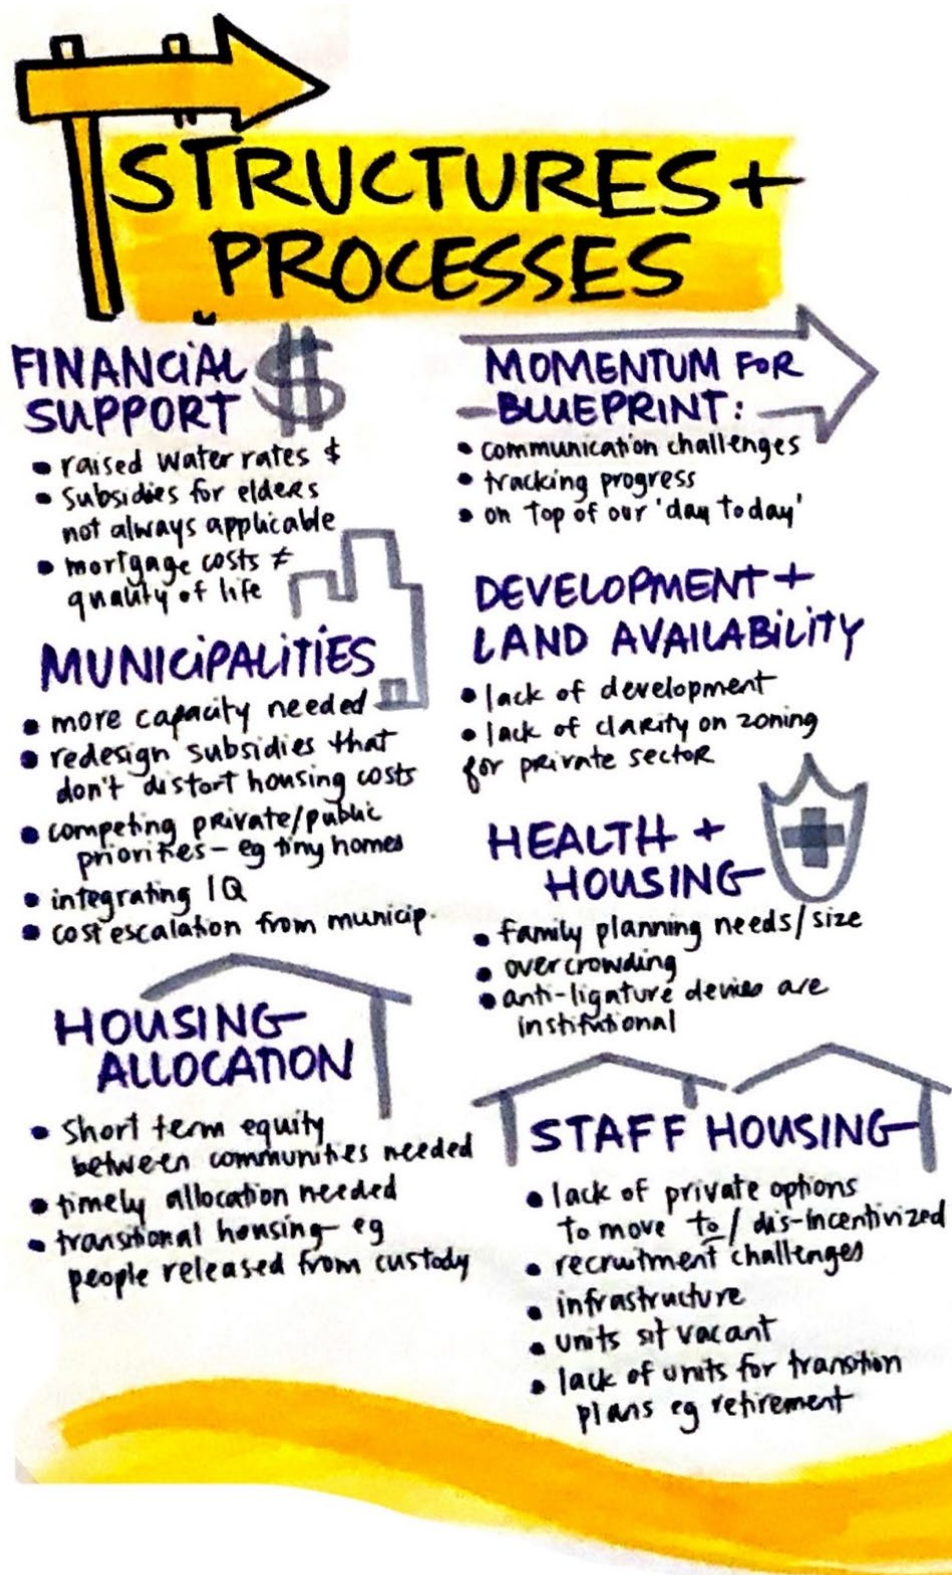 STRUCTURES +
PROCESSES
FINANCIAL $
SUPPORT
• raised water rates $
• subsidies for elders
not always applicable
• mortgage costs ≠
quality of life
MUNICIPALITIES
• more capacity needed
• redesign subsidies that
don't distort housing costs
• competing private/public
priorities - eg tiny homes
• integrating IQ
• cost escalation from municip.
HOUSING
ALLOCATION
• short term equity
between communities needed
• timely allocation needed
• transitional housing - eg
people released from custody
MOMENTUM FOR
BLUEPRINT:
• communication challenges
• tracking progress
• on top of our 'day to day'
DEVELOPMENT +
LAND AVAILABILITY
• lack of development
• lack of clarity on zoning
for private sector
HEALTH +
HOUSING
• family planning needs/size
• overcrowding
• anti-ligature devices are
institutional
STAFF HOUSING
• lack of private options
to move to / dis-incentivized
• recruitment challenges
• infrastructure
• units sit vacant
• lack of units for transition
plans eg retirement